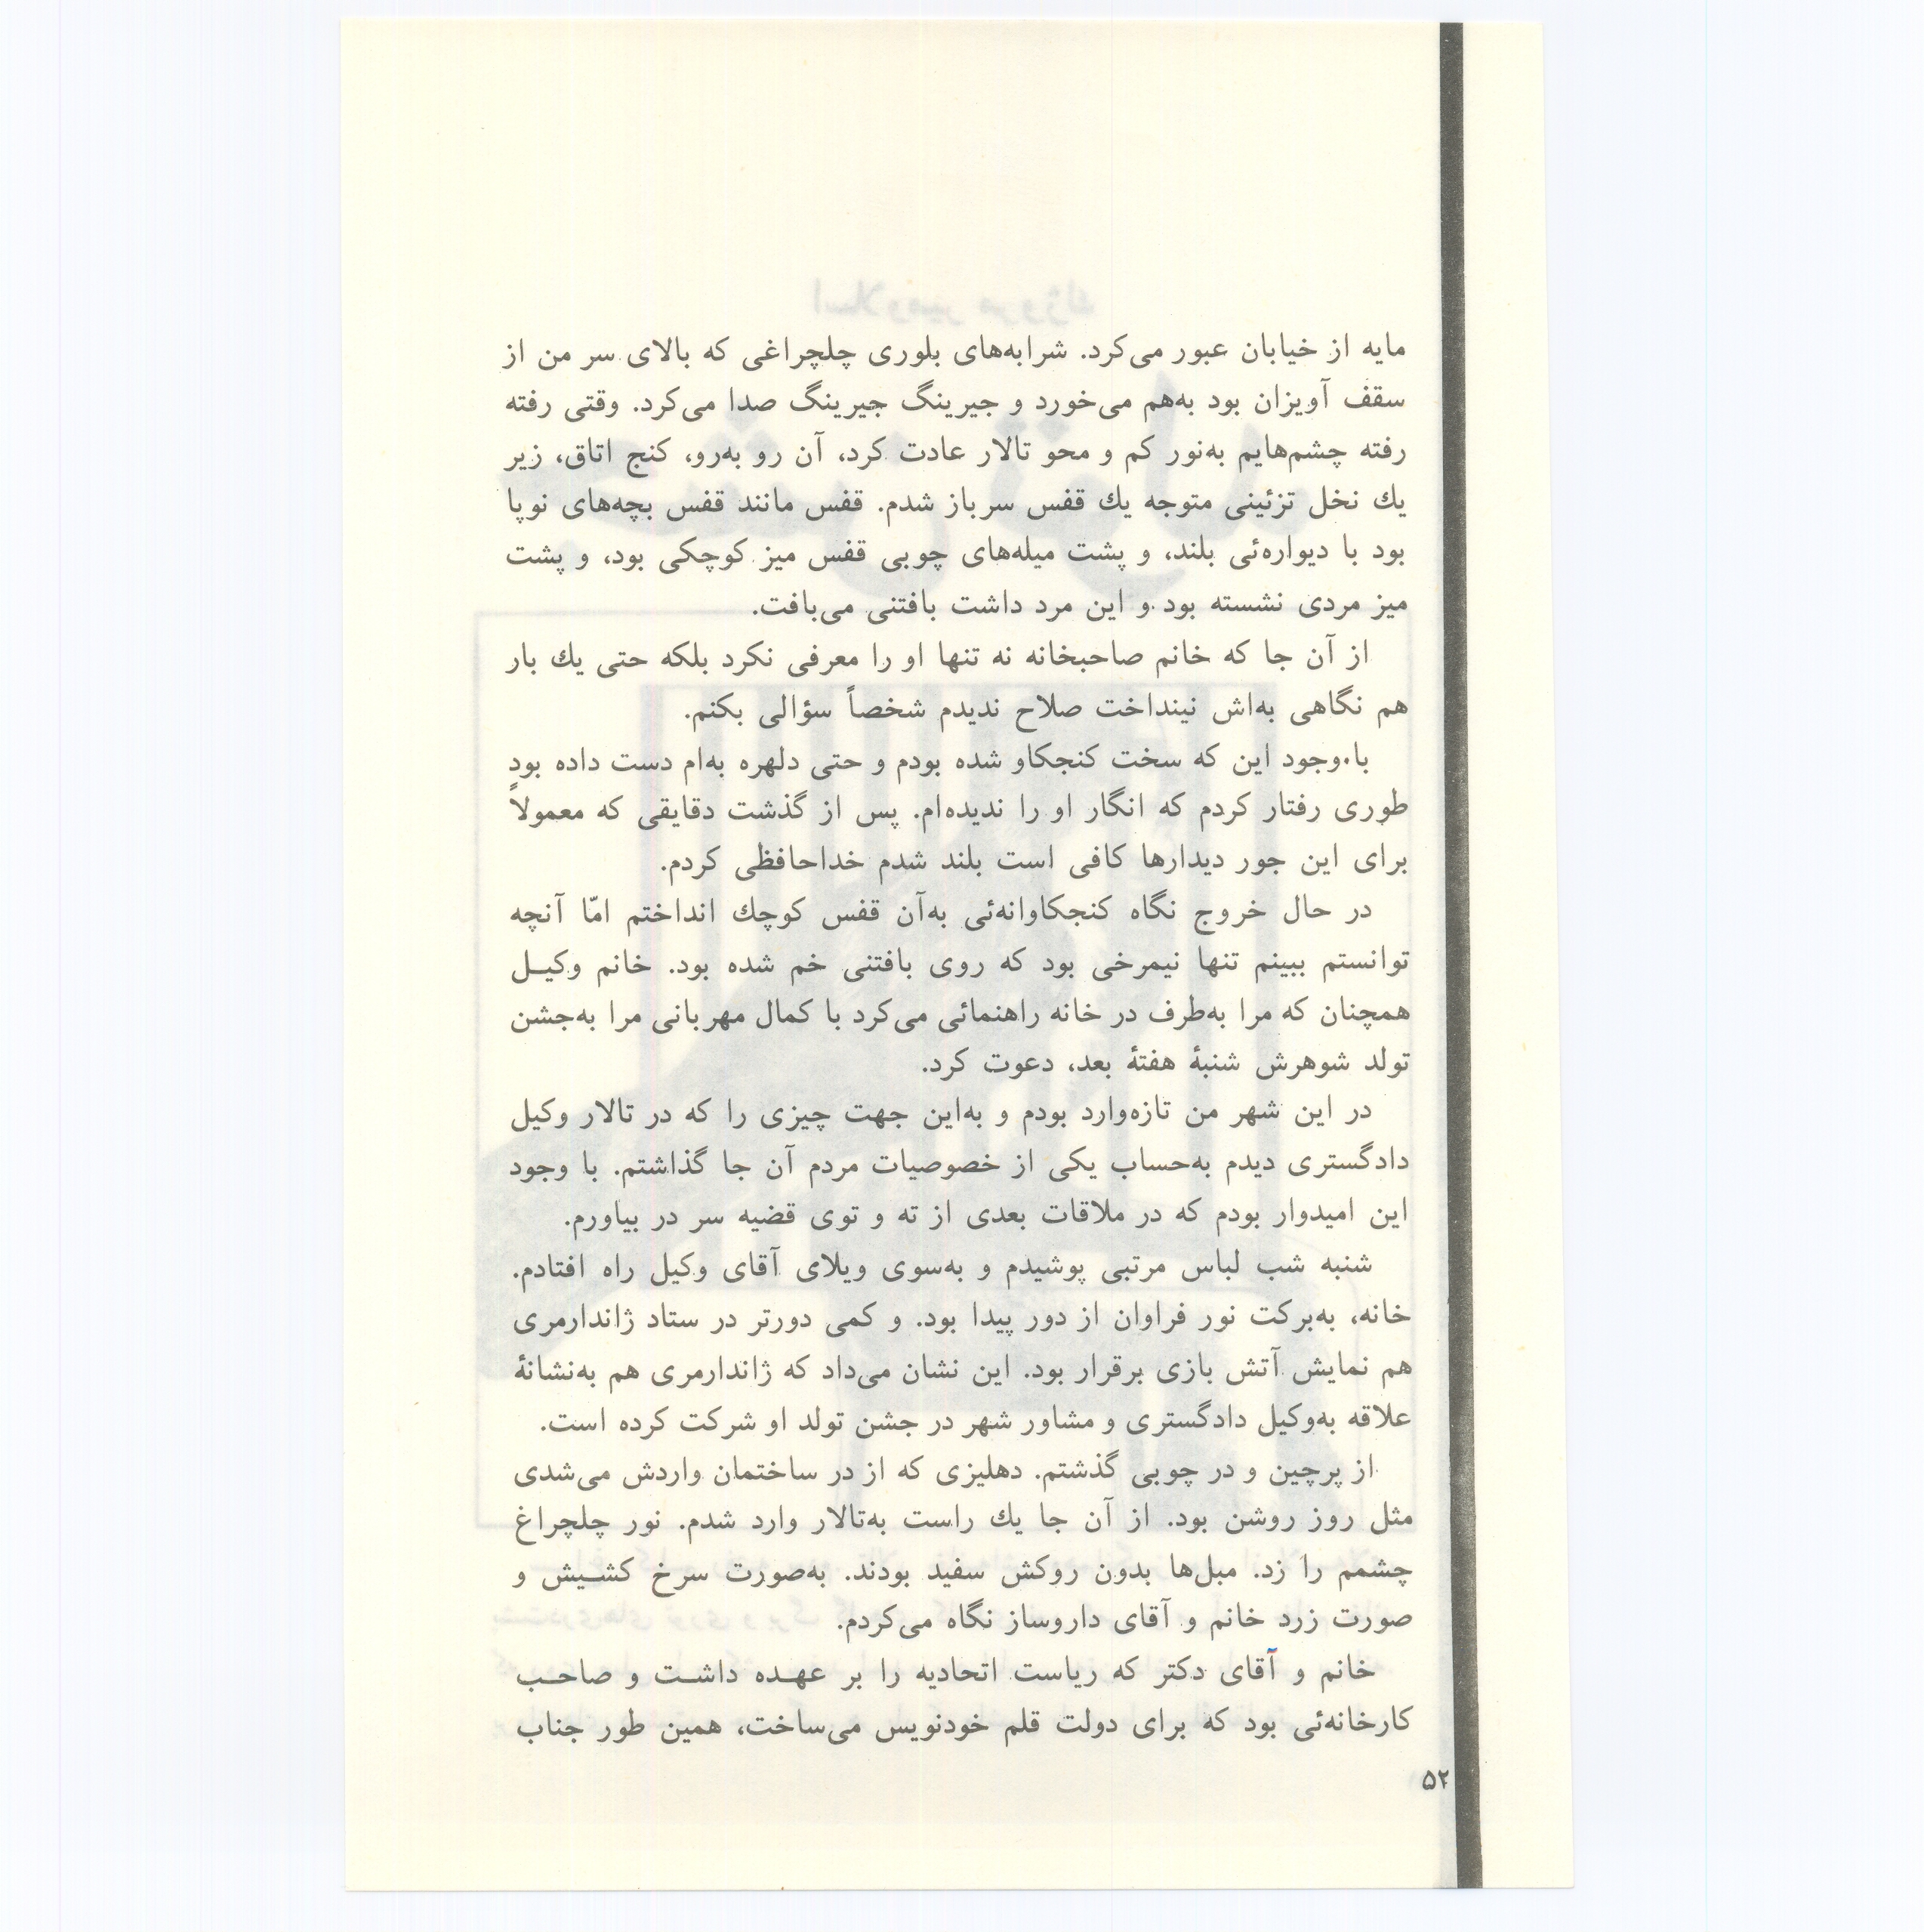 مایه از خیابان عبور می‌کرد. شرابه‌های بلوری چلچراغی که بالای سر من از
سقف آویزان بود به‌هم می‌خورد و جیرینگ جیرینگ صدا می‌کرد. وقتی رفته
رفته چشم‌هایم به‌نور کم و محو تالار عادت کرد، آن رو به‌رو، کنج اتاق، زیر
یك نخل تزئینی متوجه یك قفس سرباز شدم. قفس مانند قفس بچه‌های نوپا
بود با دیواره‌ئی بلند، و پشت میله‌های چوبی قفس میز کوچکی بود، و پشت
میز مردی نشسته بود و این مرد داشت بافتنی می‌بافت.
از آن جا که خانم صاحبخانه نه تنها او را معرفی نکرد بلکه حتی یك بار
هم نگاهی به‌اش نینداخت صلاح ندیدم شخصاً سؤالی بکنم.
با وجود این که سخت کنجکاو شده بودم و حتی دلهره به‌ام دست داده بود
طوری رفتار کردم که انگار او را ندیده‌ام. پس از گذشت دقایقی که معمولاً
برای این جور دیدارها کافی است بلند شدم خداحافظی کردم.
در حال خروج نگاه کنجکاوانه‌ئی به‌آن قفس کوچك انداختم امّا آنچه
توانستم ببینم تنها نیمرخی بود که روی بافتنی خم شده بود. خانم وکیـل
همچنان که مرا به‌طرف در خانه راهنمائی می‌کرد با کمال مهربانی مرا به‌جشن
تولد شوهرش شنبهٔ هفتهٔ بعد، دعوت کرد.
در این شهر من تازه‌وارد بودم و به‌این جهت چیزی را که در تالار وکیل
دادگستری دیدم به‌حساب یکی از خصوصیات مردم آن جا گذاشتم. با وجود
این امیدوار بودم که در ملاقات بعدی از ته و توی قضیه سر در بیاورم.
شنبه شب لباس مرتبی پوشیدم و به‌سوی ویلای آقای وکیل راه افتادم.
خانه، به‌برکت نور فراوان از دور پیدا بود. و کمی دورتر در ستاد ژاندارمری
هم نمایش آتش بازی برقرار بود. این نشان می‌داد که ژاندارمری هم به‌نشانهٔ
علاقه به‌وکیل دادگستری و مشاور شهر در جشن تولد او شرکت کرده است.
از پرچین و در چوبی گذشتم. دهلیزی که از در ساختمان واردش می‌شدی
مثل روز روشن بود. از آن جا یك راست به‌تالار وارد شدم. نور چلچراغ
چشمم را زد. مبل‌ها بدون روکش سفید بودند. به‌صورت سرخ کشـیش و
صورت زرد خانم و آقای داروساز نگاه می‌کردم.
خانم و آقای دکتر که ریاست اتحادیه را بر عهـده داشـت و صاحـب
کارخانه‌ئی بود که برای دولت قلم خودنویس می‌ساخت، همین طور جناب
۵۲